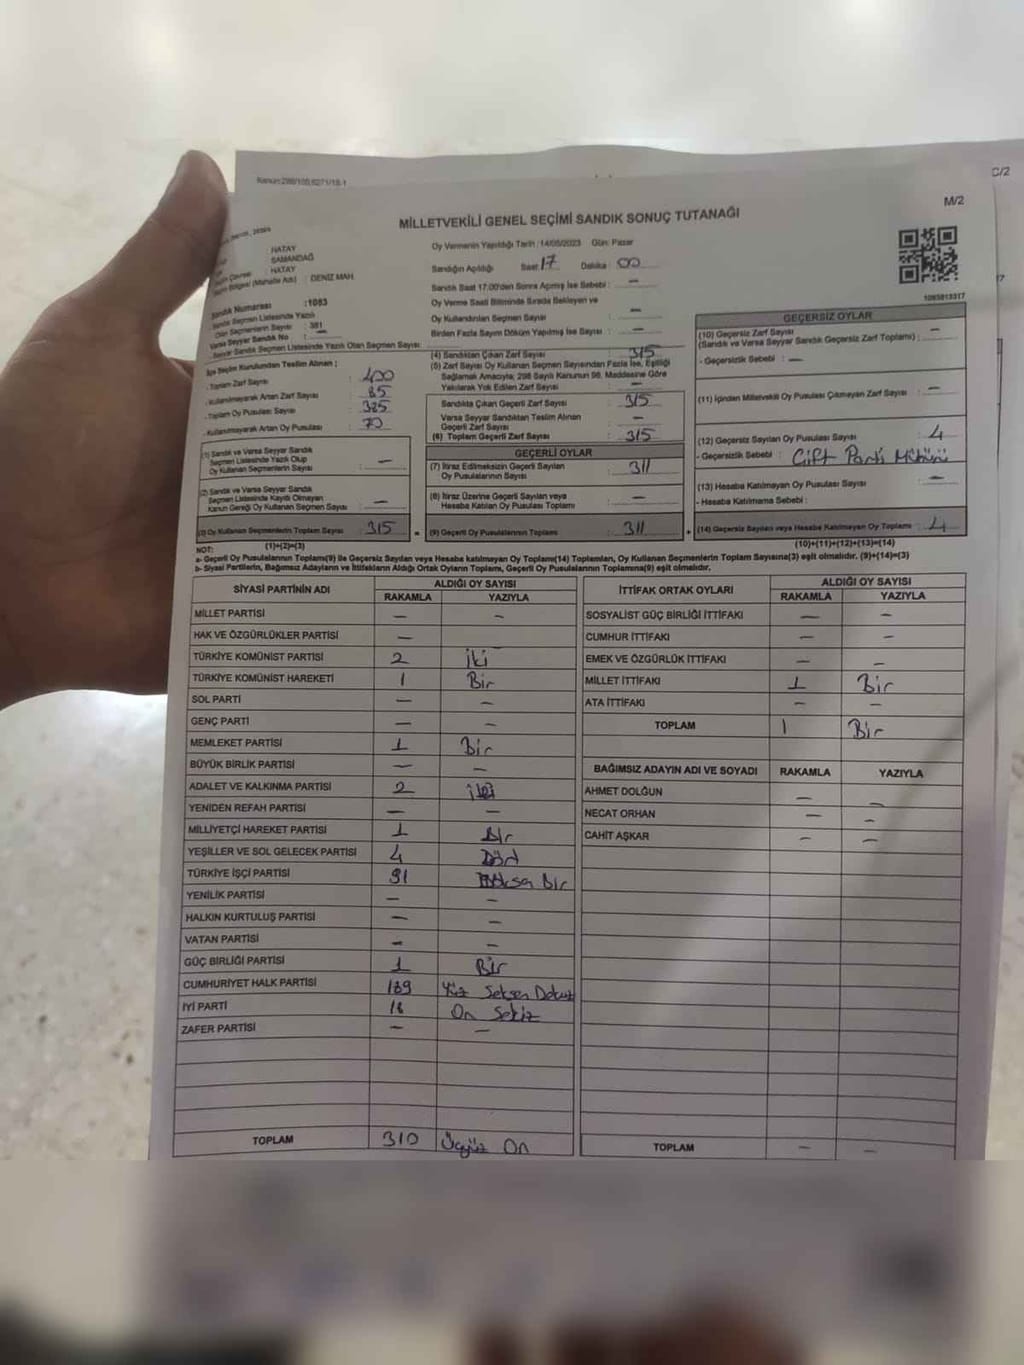 Kanun:298/105,6271/18-1
C/2
M/2
MİLLETVEKİLİ GENEL SEÇİMİ SANDIK SONUÇ TUTANAĞI
: HATAY
: SAMANDAĞ
: HATAY
Seçim Bölgesi (Mahalle Adı) : DENİZ MAH.
Sandık Numarası : 1083
Sandık Seçmen Listesinde Yazılı
Olan Seçmenlerin Sayısı : 381
Varsa Seyyar Sandık No : —
Seyyar Sandık Seçmen Listesinde Yazılı Olan Seçmen Sayısı
Oy Vermenin Yapıldığı Tarih :14/05/2023 Gün: Pazar
Sandığın Açıldığı Saat: 17 Dakika : 00
Sandık Saat 17:00'den Sonra Açılmış İse Sebebi : —
Oy Verme Saati Bitiminde Sırada Bekleyen ve
Oy Kullandırılan Seçmen Sayısı —
Birden Fazla Sayım Döküm Yapılmış İse Sayısı : —
1083813317
İlçe Seçim Kurulundan Teslim Alınan ;
- Toplam Zarf Sayısı : 400
- Kullanılmayarak Artan Zarf Sayısı : 85
- Toplam Oy Pusulası Sayısı : 385
- Kullanılmayarak Artan Oy Pusulası : 70
(1) Sandık ve Varsa Seyyar Sandık
Seçmen Listesinde Yazılı Olup
Oy Kullanan Seçmenlerin Sayısı : —
(2) Sandık ve Varsa Seyyar Sandık
Seçmen Listesinde Kayıtlı Olmayan
Kanun Gereği Oy Kullanan Seçmen Sayısı : —
(3) Oy Kullanan Seçmenlerin Toplam Sayısı : 315
(1)+(2)=(3)
(4) Sandıktan Çıkan Zarf Sayısı : 315
(5) Zarf Sayısı Oy Kullanan Seçmen Sayısından Fazla İse, Eşitliği
Sağlamak Amacıyla; 298 Sayılı Kanunun 98. Maddesine Göre
Yakılarak Yok Edilen Zarf Sayısı : —
Sandıkta Çıkan Geçerli Zarf Sayısı : 315
Varsa Seyyar Sandıktan Teslim Alınan
Geçerli Zarf Sayısı : —
(6) Toplam Geçerli Zarf Sayısı : 315
GEÇERLİ OYLAR
(7) İtiraz Edilmeksizin Geçerli Sayılan
Oy Pusulalarının Sayısı : 311
(8) İtiraz Üzerine Geçerli Sayılan veya
Hesaba Katılan Oy Pusulası Toplamı : —
(9) Geçerli Oy Pusulalarının Toplamı : 311
GEÇERSİZ OYLAR
(10) Geçersiz Zarf Sayısı
(Sandık ve Varsa Seyyar Sandık Geçersiz Zarf Toplamı) : —
- Geçersizlik Sebebi : —
(11) İçinden Milletvekili Oy Pusulası Çıkmayan Zarf Sayısı : —
(12) Geçersiz Sayılan Oy Pusulası Sayısı : 4
- Geçersizlik Sebebi : Çift Parti Mührü
(13) Hesaba Katılmayan Oy Pusulası Sayısı : —
- Hesaba Katılmama Sebebi :
(14) Geçersiz Sayılan veya Hesaba Katılmayan Oy Toplamı : 4
(10)+(11)+(12)+(13)=(14)
NOT:
a- Geçerli Oy Pusulalarının Toplamı(9) ile Geçersiz Sayılan veya Hesaba katılmayan Oy Toplamı(14) Toplamları, Oy Kullanan Seçmenlerin Toplam Sayısına(3) eşit olmalıdır. (9)+(14)=(3)
b- Siyasi Partilerin, Bağımsız Adayların ve İttifakların Aldığı Ortak Oyların Toplamı, Geçerli Oy Pusulalarının Toplamına(9) eşit olmalıdır.
SİYASİ PARTİNİN ADI ALDIĞI OY SAYISI
RAKAMLA YAZIYLA
MİLLET PARTİSİ — —
HAK VE ÖZGÜRLÜKLER PARTİSİ —
TÜRKİYE KOMÜNİST PARTİSİ 2 İki
TÜRKİYE KOMÜNİST HAREKETİ 1 Bir
SOL PARTİ — —
GENÇ PARTİ — —
MEMLEKET PARTİSİ 1 Bir
BÜYÜK BİRLİK PARTİSİ — —
ADALET VE KALKINMA PARTİSİ 2 iki
YENİDEN REFAH PARTİSİ — —
MİLLİYETÇİ HAREKET PARTİSİ 1 Bir
YEŞİLLER VE SOL GELECEK PARTİSİ 4 Dört
TÜRKİYE İŞÇİ PARTİSİ 91 Bir
YENİLİK PARTİSİ — —
HALKIN KURTULUŞ PARTİSİ — —
VATAN PARTİSİ — —
GÜÇ BİRLİĞİ PARTİSİ 1 Bir
CUMHURİYET HALK PARTİSİ 189 Yüz Seksen Dokuz
İYİ PARTİ 18 On Sekiz
ZAFER PARTİSİ — —
TOPLAM 310 Üçyüz On
İTTİFAK ORTAK OYLARI ALDIĞI OY SAYISI
RAKAMLA YAZIYLA
SOSYALİST GÜÇ BİRLİĞİ İTTİFAKI — —
CUMHUR İTTİFAKI — —
EMEK VE ÖZGÜRLÜK İTTİFAKI — —
MİLLET İTTİFAKI 1 Bir
ATA İTTİFAKI — —
TOPLAM 1 Bir
BAĞIMSIZ ADAYIN ADI VE SOYADI RAKAMLA YAZIYLA
AHMET DOLĞUN — —
NECAT ORHAN — —
CAHİT AŞKAR — —
TOPLAM — —